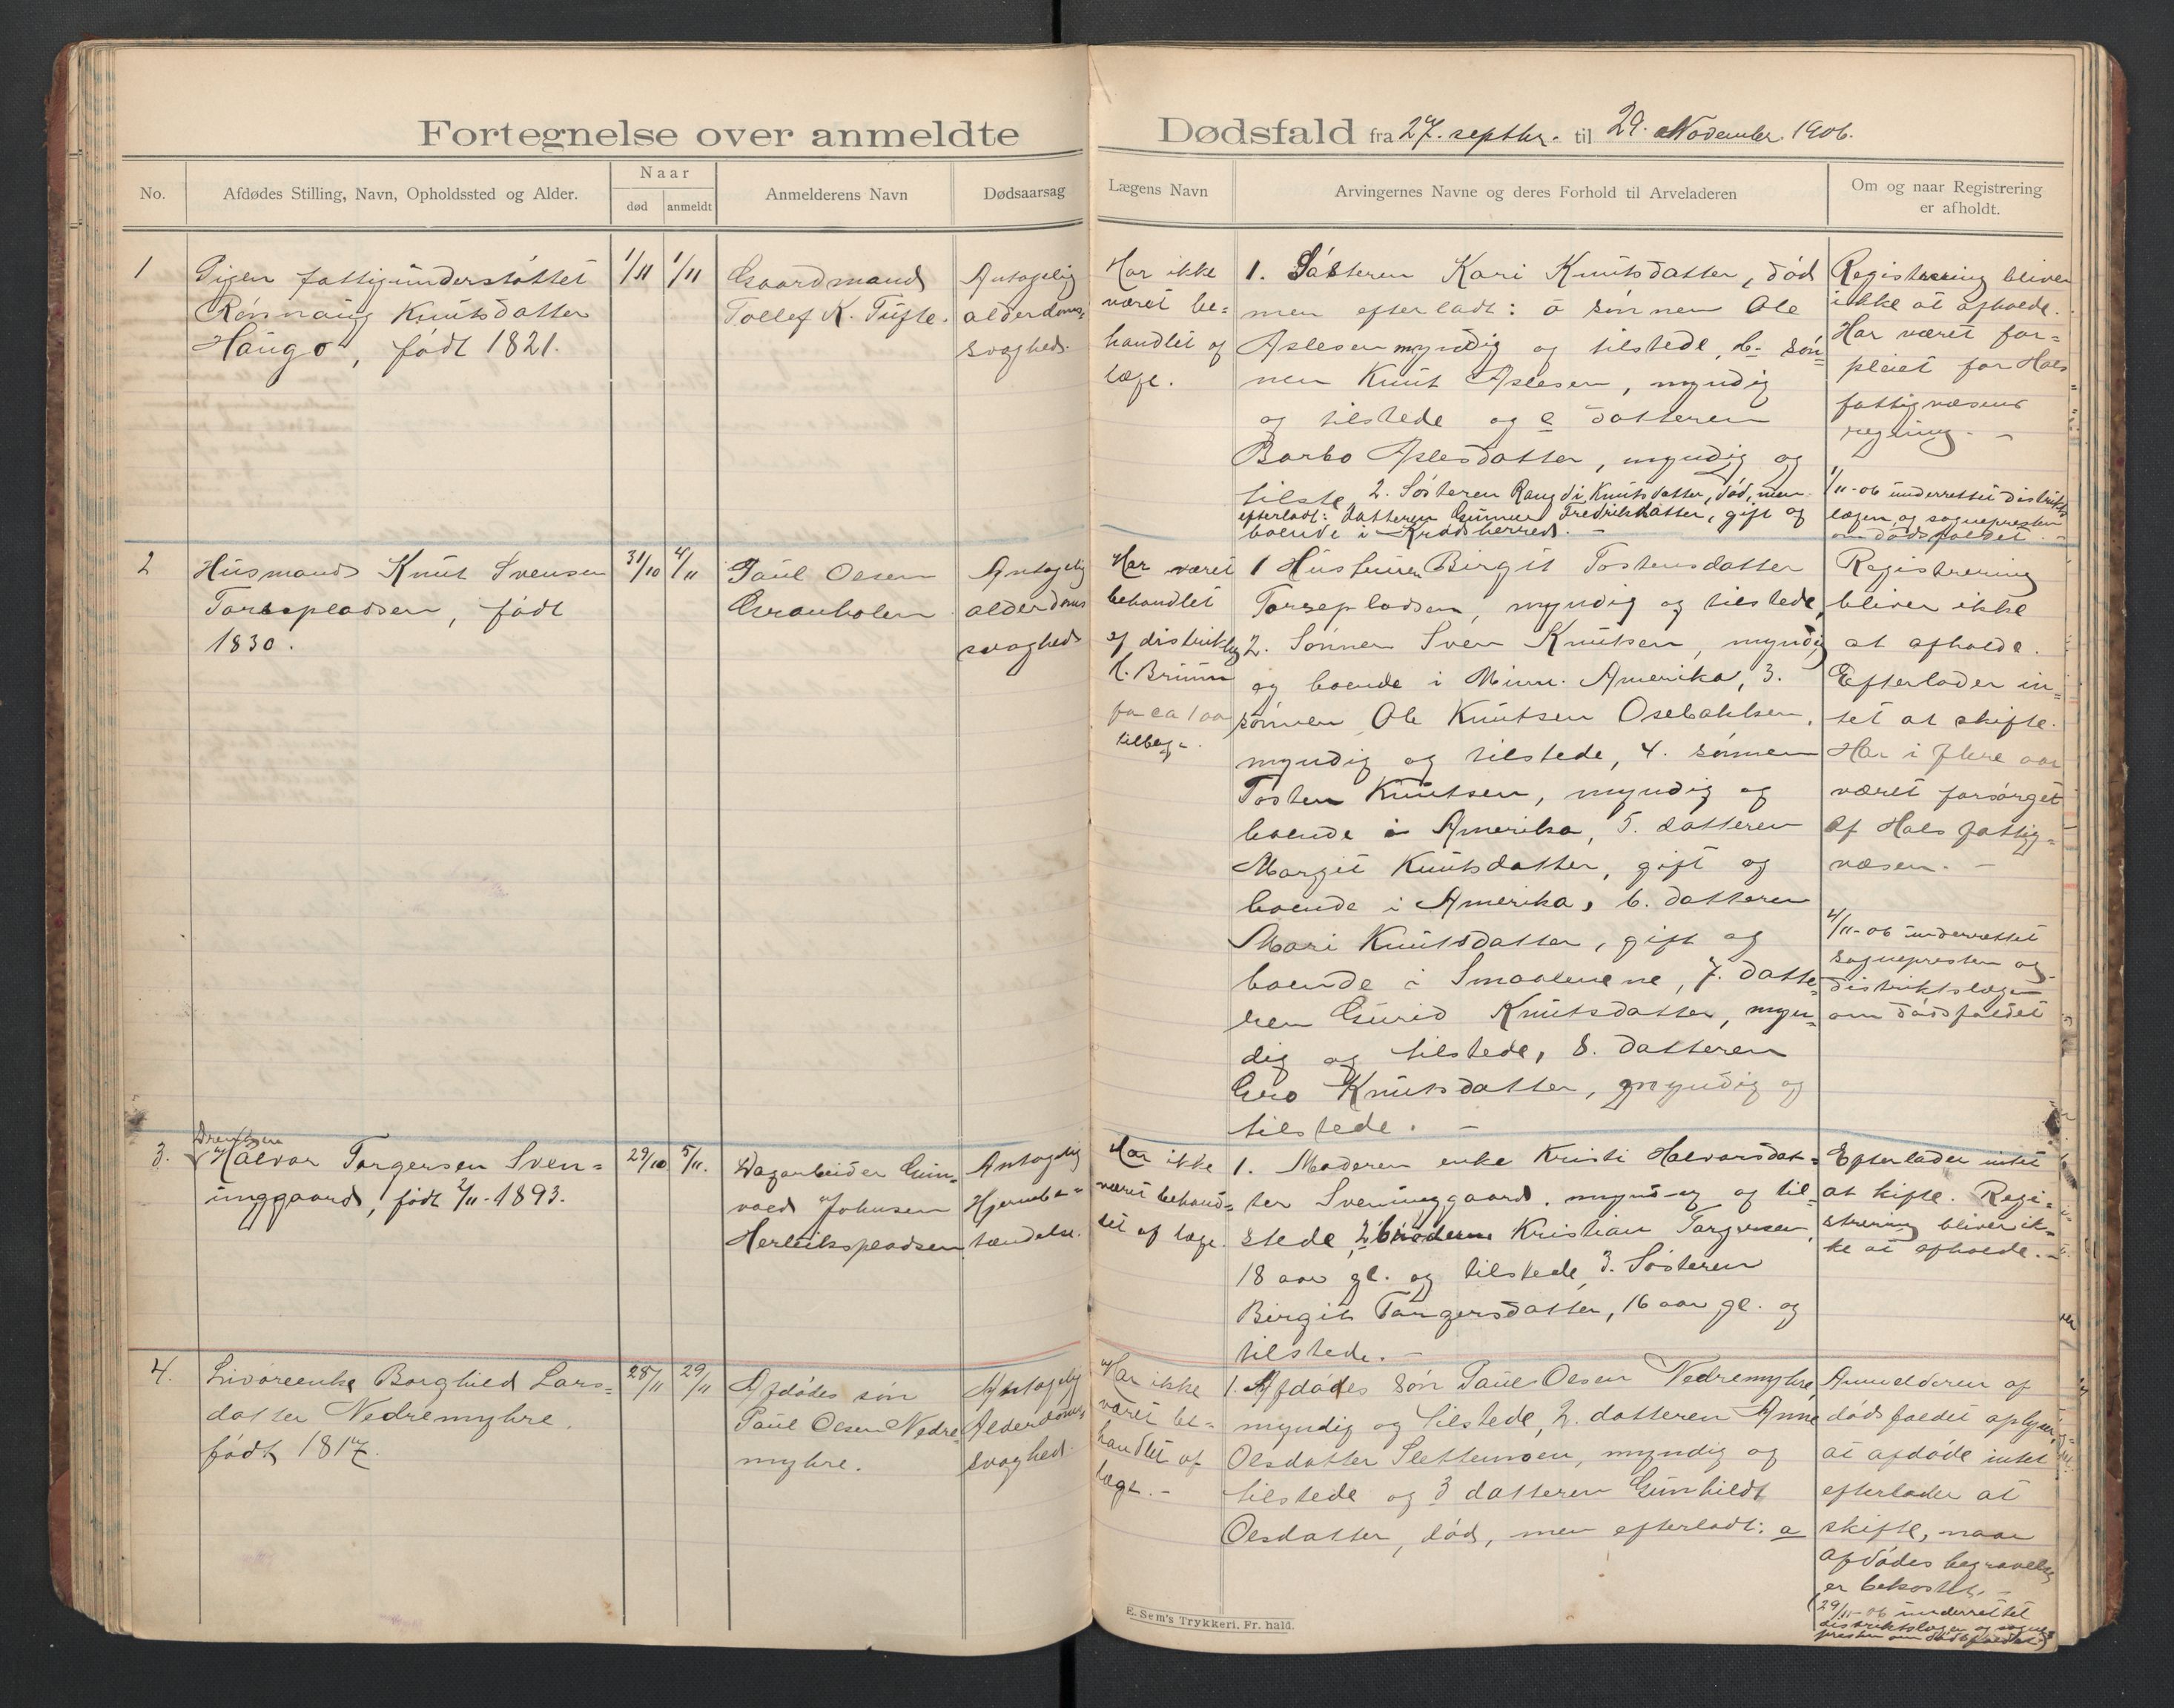 Fortegnelse over anmeldte Dødsfald fra 27. septbr. til 29. November 1906.
No.
Afdødes Stilling, Navn, Opholdssted og Alder.
Naar
død
anmeldt
Anmelderens Navn
Dødsaarsag
Lægens Navn
Arvingernes Navne og deres Forhold til Arveladeren
Om og naar Registrering
er afholdt.
1
Pigen fattigunderstøttet
Rønnaug Knutsdatter
Haugo, født 1821.
1/11
1/11
Gaardmand
Tollef K. Tufte.
Antagelig
alderdoms-
svaghed.
Har ikke
været be-
handlet af
læge.
1. Søsteren Kari Knutsdatter, død
men efterladt: a sønnen Ole
Aslesen myndig og tilstede, b. søn-
nen Knut Aslesen, myndig
og tilstede og c datteren
Barbo Aslesdatter, myndig og
tilste 2. Søsteren Rangdi Knutsdatter, død, men
efterladt: datteren Gunnur Fredriksdatter, gift og
boende i Krødsherred. -
Registrering bliver
ikke at afholde.
Har været for-
pleiet for Hols
fattigvæsens
regning. -
1/11-06 underrettet distrikts
lægen og sognepresten
om dødsfaldet. -
2
Husmand Knut Svensen
Torsepladsen, født
1830.
31/10
4/11
Paul Olsen
Granholen
Antagelig
alderdoms
svaghed
Har været
behandlet
af distriktslæg
H. Bruun
for ca 1 aar
tilbage.
1 Hustruen Birgit Tostensdatter
Torsepladsen, myndig og tilstede,
2. Sønnen Sven Knutsen, myndig
og boende i Minn. Amerika, 3.
sønnen Ole Knutsen Osebakken,
myndig og tilstede, 4. sønnen
Tosten Knutsen, myndig og
boende i Amerika, 5. datteren
Margit Knutsdatter, gift og
boende i Amerika, 6. datteren
Mari Knutsdatter, gift og
boende i Smaalenene, 7. datte-
ren Gurid Knutsdatter, myn-
dig og tilstede, 8. datteren
Gro Knutsdatter, myndig og
tilstede. -
Registrering
bliver ikke
at afholde.
Efterlader in-
tet at skifte.
Har i flere aar
været forsørget
af Hols fattig-
væsen. -
4/11-06 underrettet
sognepresten og
distriktslægen
om dødsfaldet
3.
Drengen
Halvor Torgersen Sven-
unggaard, født 2/11-1893.
29/10
5/11.
Dagarbeider Gun-
vald Johnsen
Herleikspladsen
Antagelig
Hjernebe-
tændelse.
Har ikke
været behand-
let af læge.
1. Moderen enke Kristi Halvorsdat-
ter Svenunggaard, myndig og til-
stede, 2 broderen Kristian Torgersen,
18 aar gl. og tilstede, 3. Søsteren
Birgit Torgersdatter, 16 aar gl. og
tilstede. -
Efterlader intet
at skifte. Regi-
strering bliver ik-
ke at afholde. -
4.
Livøreenke Borghild Lars-
datter Nedremyhre,
født 1817.
28/11
29/11
Afdødes søn
Paul Olsen Nedre-
myhre.
Antagelig
Alderdoms-
svaghed.
Har ikke
været be-
handlet af
læge. -
1. Afdødes søn Paul Olsen Nedremyhre,
myndig og tilstede, 2. datteren Anne
Olsdatter Slettemoen, myndig og
tilstede og 3 datteren Gunhild
Olsdatter, død, men efterladt: a
Anmelderen af
dødsfaldet oplyser,
at afdøde intet
efterlader at
skifte, naar
afdødes begravelse
er bekostet. -
(29/11-06 underrettet
distriktslægen og sogne-
presten om dødsfaldet.)
E. Sem's Trykkeri, Fr. hald.